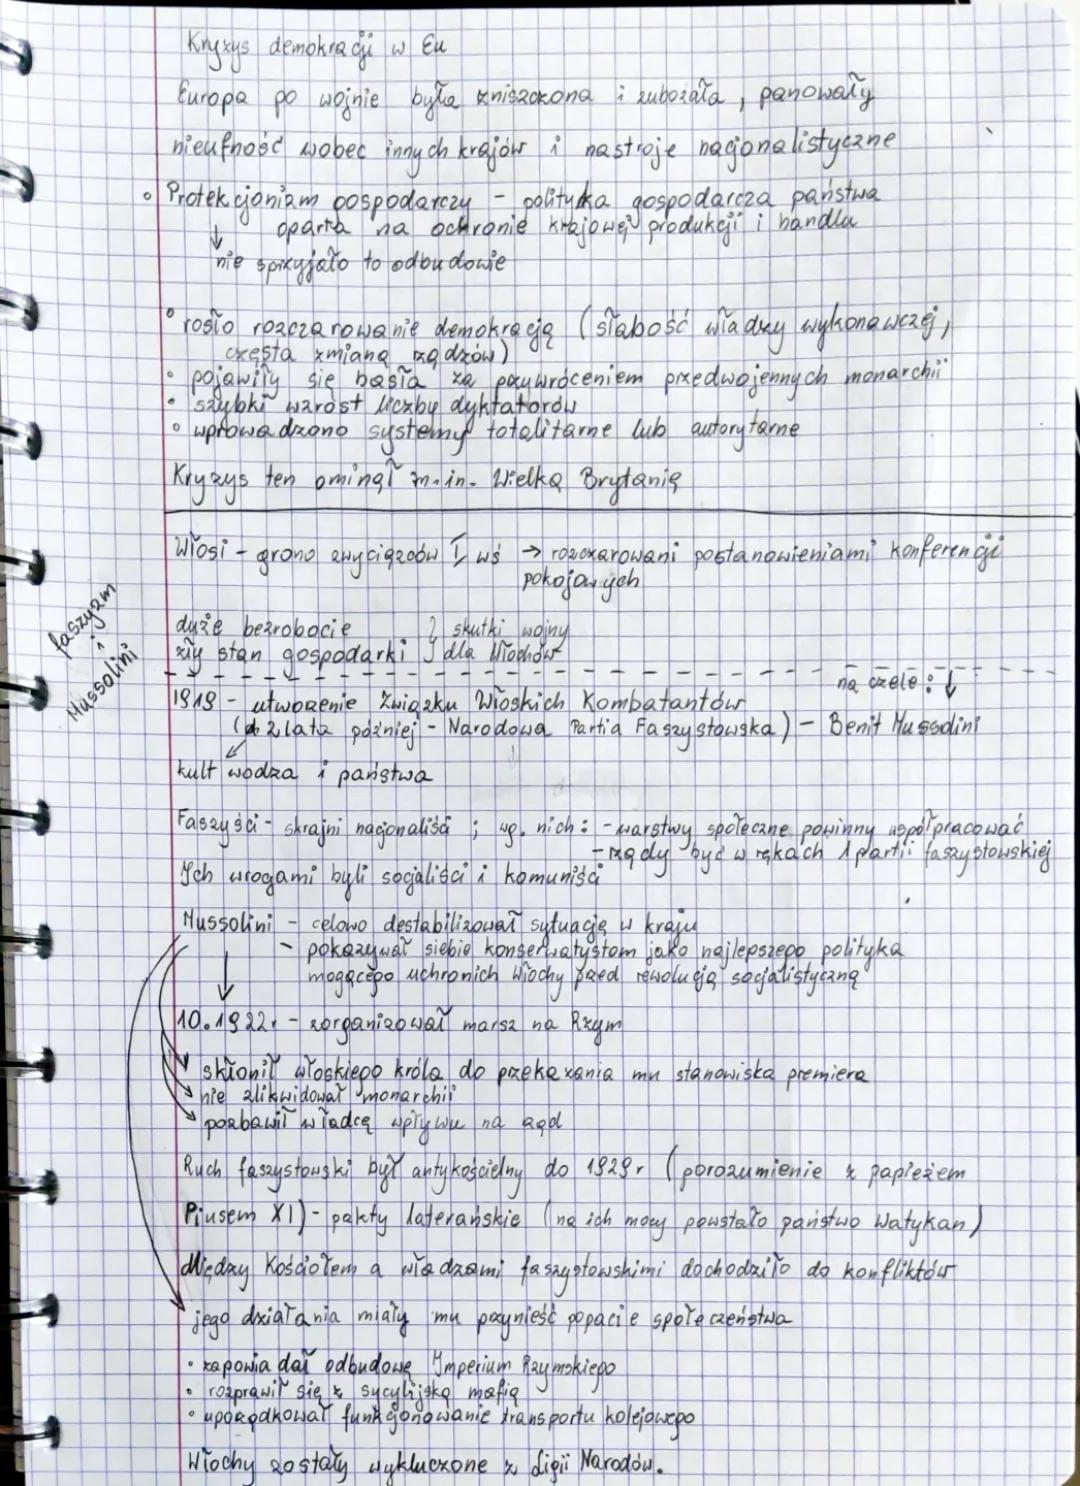 Kryzys demokracji w Eu
Europa po wojnie była zniszczona i zubożała, panowały
nieufność wobec innych krajów i nastroje nacjonalistyczne
◦ Protekcjonizm gospodarczy - polityka gospodarcza państwa
oparta na ochronie krajowej produkcji i handlu
↓
nie sprzyjało to odbudowie
◦ rosło rozczarowanie demokracją (słabość władzy wykonawczej,
częsta zmiana rządzów)
◦ pojawiły się hasła za przywróceniem przedwojennych monarchii
◦ szybki wzrost liczby dyktatorów
◦ wprowadzono systemy totalitarne lub autorytarne
Kryzys ten ominął m.in. Wielką Brytanię
faszyzm
i
Mussolini
Włosi - grono zwycięzców I wś → rozczarowani postanowieniami konferencji
pokojowych
duże bezrobocie } skutki wojny
zły stan gospodarki } dla Włochów
na czele: ↓
1919 - utworzenie Związku Włoskich Kombatantów
(2 lata później - Narodowa Partia Faszystowska) - Benit Mussolini
kult wodza i państwa
Faszyści - skrajni nacjonaliści ; wg. nich: - warstwy społeczne powinny współpracować
- rządy być w rękach 1 partii faszystowskiej
Ich wrogami byli socjaliści i komuniści
Mussolini - celowo destabilizował sytuację w kraju
- pokazywał siebie konserwatystom jako najlepszego polityka
mogącego uchronich Włochy przed rewolucją socjalistyczną
10.1922r - zorganizował marsz na Rzym
skłonił włoskiego króla do przekazania mu stanowiska premiera
nie zlikwidował monarchii
pozbawił władcę wpływu na rząd
Ruch faszystowski był antykościelny do 1929r (porozumienie z papieżem
Piusem XI) - pakty laterańskie (na ich mocy powstało państwo Watykan)
Między Kościołem a władzami faszystowskimi dochodziło do konfliktów
jego działania miały mu przynieść poparcie społeczeństwa
• zapowiadał odbudowę Imperium Rzymskiego
• rozprawił się z sycylijską mafią
• uporządkował funkcjonowanie transportu kolejowego
Włochy zostały wykluczone z Ligii Narodów.